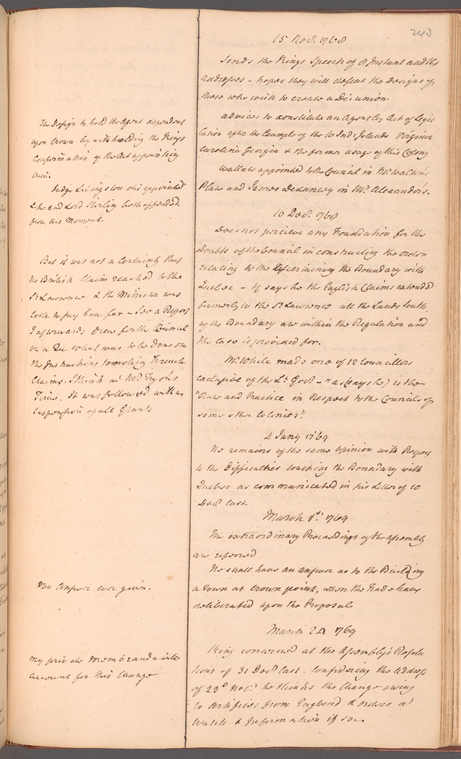 243
15 Nov.r 1768
Sends the Kings Speech of 8 Instant and the
addresses - hopes they will defeat the Designs of
those who wish to create a disunion.
advises to constitute an Agent by Act of Legis
lation after the Example of the W. Ind.a Islands Virginia
Carolina Georgia & the former usage of this Colony
Wallace appointed to the Council in Mr. Watts's
Place and James Delancey in Mr. Alexander's.
The Design to hold the Agent dependent
upon Crown by withholding the Kings
Confirmation of the Act appointing
him.
Judge Livingston disappointed
& he and Lord Stirling both offended
from this Moment.
10 Dec.r 1768
Does not perceive any Foundation for the
Doubts of the Council in constructing the order
relating to the ascertaining the Boundary with
Quebec - If says he the English Claims extended
formerly to the St. Lawrence all the Lands South
of the Boundary are within the Regulation and
the Case is provided for.
But it was not a Certainty that
the British Claim reached to the
St. Lawrence & the Minister was
to say how far - See a Report
afterwards drew for the Council
on a Qu. what was to be done on
the Instructions touching French
Claims. I think in Mr. Tryon's
Time. It was followed with a
Suspension of all Grants
Mr. White made one of 12 Councillors
exclusive of the Lt. Gov.r - as (says he) is the
Rule and Practice in Respect to the Councils of
some other Colonies.
4 Jan.y 1769
He remains of the same opinion with Respect
to the Difficulties touching the Boundary with
Quebec as communicated in his Letter of 10
Dec.r last.
March 1st. 1769
The extraordinary Proceedings of the Assembly
are referred
We shall have an answer as to the Building
a Town at Crown point, when the Trade have
deliberated upon the Proposal
No Answer ever given.
March 24 1769
King concerned at the Assembly's Resolu
tions of 31 Dec.r last. Considering the Address
of 23d Nov.r he thinks the Change owing
to Artifices from England & orders a
Watch & Information if so.
My private Memoranda will
account for this Change